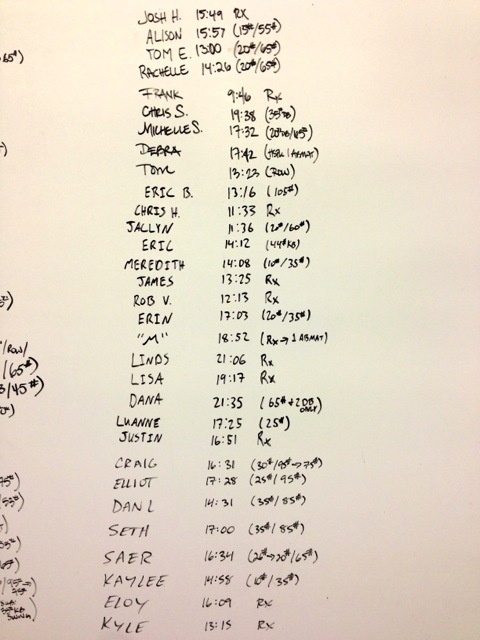 JOSH H. 15:49 RX
ALISON 15:57 (15#/55#)
TOM E. 13:00 (20#/65#)
RACHELLE 14:26 (20#/65#)
FRANK 9:46 Rx
CHRIS S. 19:38 (35#DB)
MICHELLE S. 17:32 (20#DB/45#)
DEBRA 17:42 (HSPU 1 ABMAT)
TOM 13:23 (ROW)
ERIC B. 13:16 (105#)
CHRIS H. 11:33 Rx
JACLYN 11:36 (20#/60#)
ERIC 14:12 (44#KB)
MEREDITH 14:08 (10#/35#)
JAMES 13:25 Rx
ROB V. 12:13 Rx
ERIN 17:03 (20#/35#)
"M" 18:52 (Rx→1 ABMAT)
LINDS 21:06 Rx
LISA 19:17 Rx
DANA 21:35 (65#+2DB ONLY)
LUANNE 17:25 (25#)
JUSTIN 16:51 Rx
CRAIG 16:31 (30#/95#→75#)
ELLIOT 17:28 (25#/95#)
DAN L 14:31 (35#/85#)
SETH 17:00 (35#/85#)
SAER 16:34 (26#→20#/65#)
KAYLEE 14:58 (10#/35#)
ELOY 16:09 RX
KYLE 13:15 RX